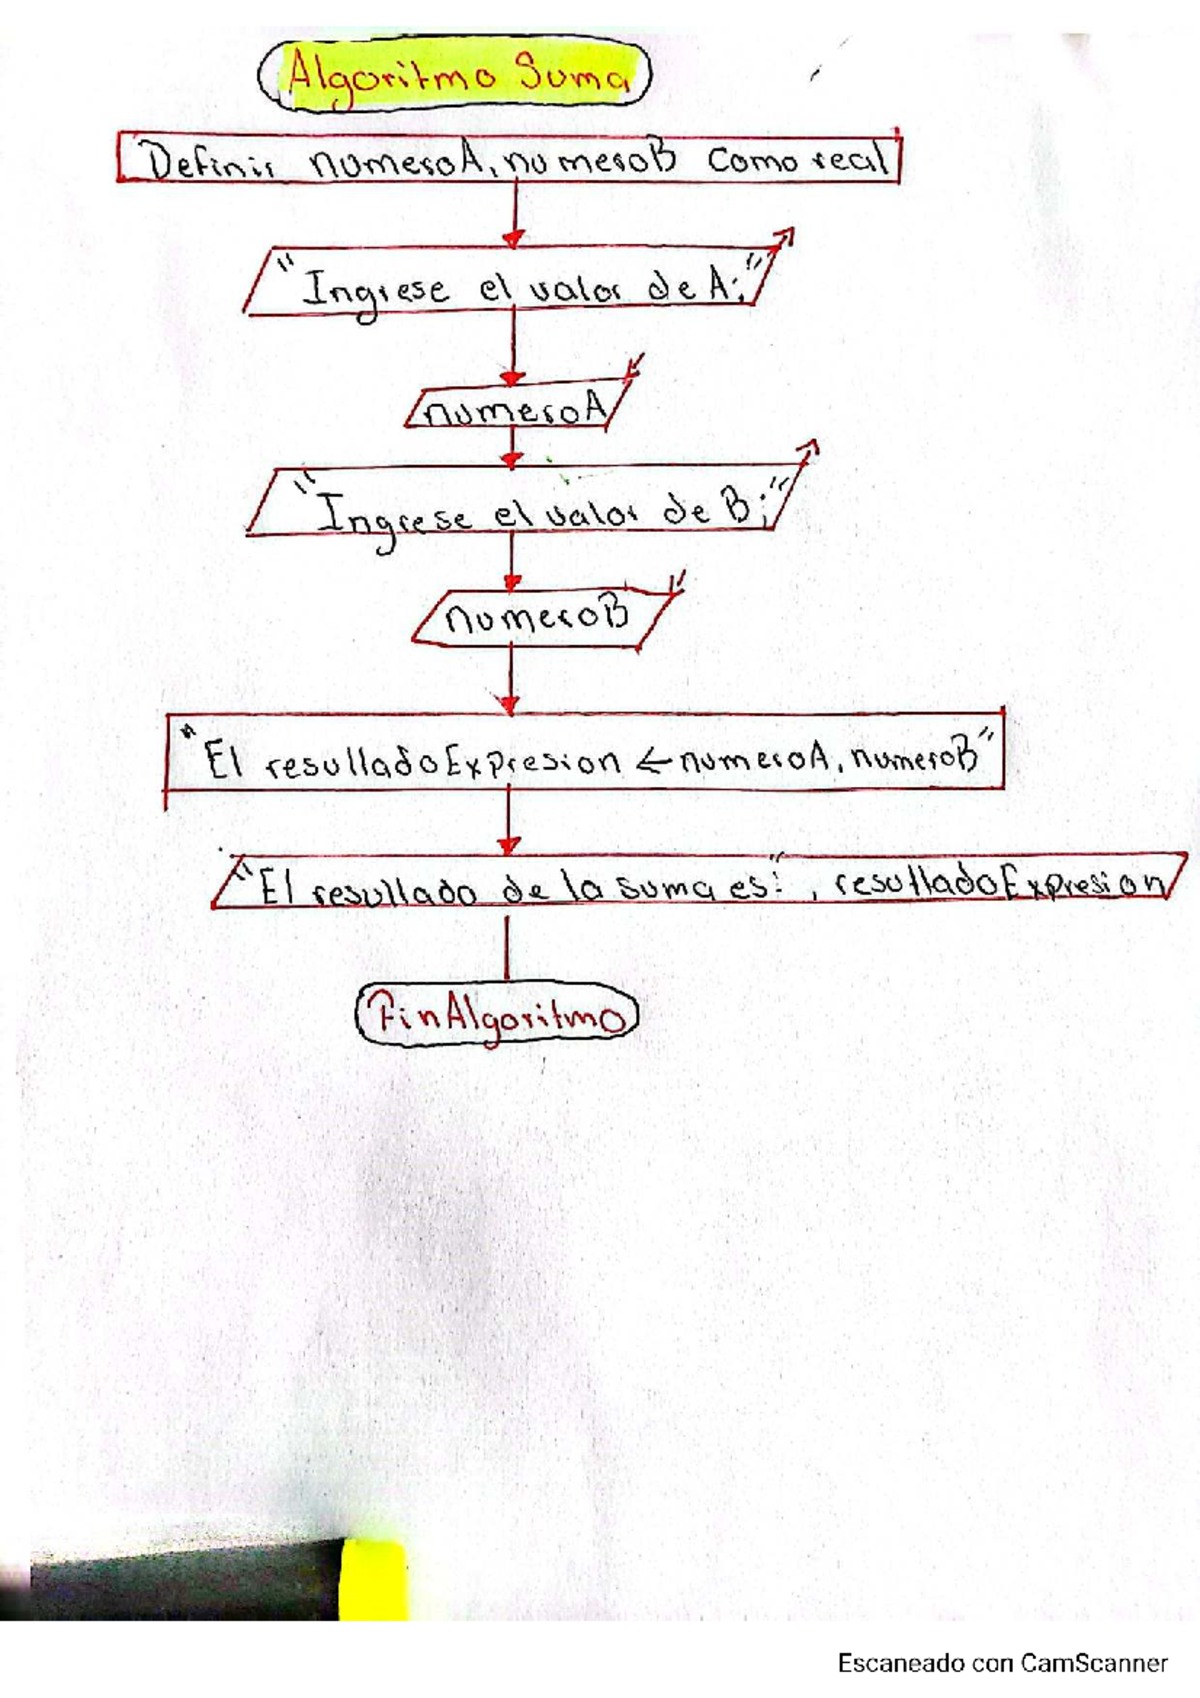 Algoritmo Suma
Definir numeroA, numeroB como real
"Ingrese el valor de A:"
numeroA
"Ingrese el valor de B:"
numeroB
"El resultadoExpresion ← numeroA, numeroB"
"El resultado de la suma es:", resultadoExpresion
FinAlgoritmo
Escaneado con CamScanner